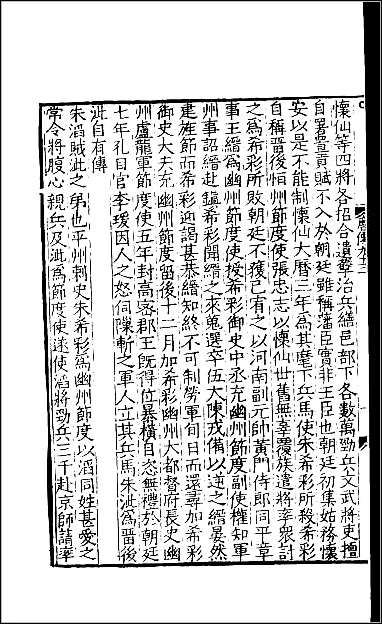 懷仙等四將各招合遺孽治兵繕邑部下各數萬勁兵文武將吏擅
自署置貢賦不入於朝廷雖稱藩臣實非王臣也朝廷初集姑務懷
安以是不能制懷仙大曆三年為其麾下兵馬使朱希彩所殺希彩
自稱畱後恒州節度使張忠志以懷仙世舊無辜覆族遣將率眾討
之為希彩所敗朝廷不獲已宥之以河南副元帥黃門侍郎同平章
事王縉為幽州節度使授希彩御史中丞充幽州節度副使權知軍
州事詔縉赴鎮希彩聞縉之來蒐選卒伍大陳戎備以逆之縉晏然
建旌節而希彩迎謁甚恭縉知終不可制勞軍旬日而還尋加希彩
御史大夫充幽州節度畱後十二月加希彩幽州大都督府長史幽
州盧龍軍節度使五年封高密郡王既得位暴橫自恣無禮於朝廷
七年孔目官李瑗因人之怒伺隙斬之軍人立其兵馬朱泚為畱後
泚自有傳
朱滔賊泚之弟也平州刺史朱希彩為幽州節度以滔同姓甚愛之
常令將腹心親兵及泚為節度使遂使滔將勁兵三千赴京師請率